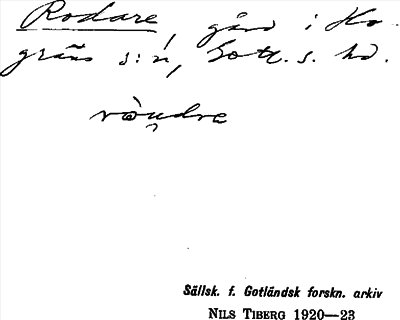 Rodare, gård i Ho-
gräns s:n, Gotl. s. hd.
Sällsk. f. Gotländsk forskn. arkiv
NILS TIBERG 1920—23